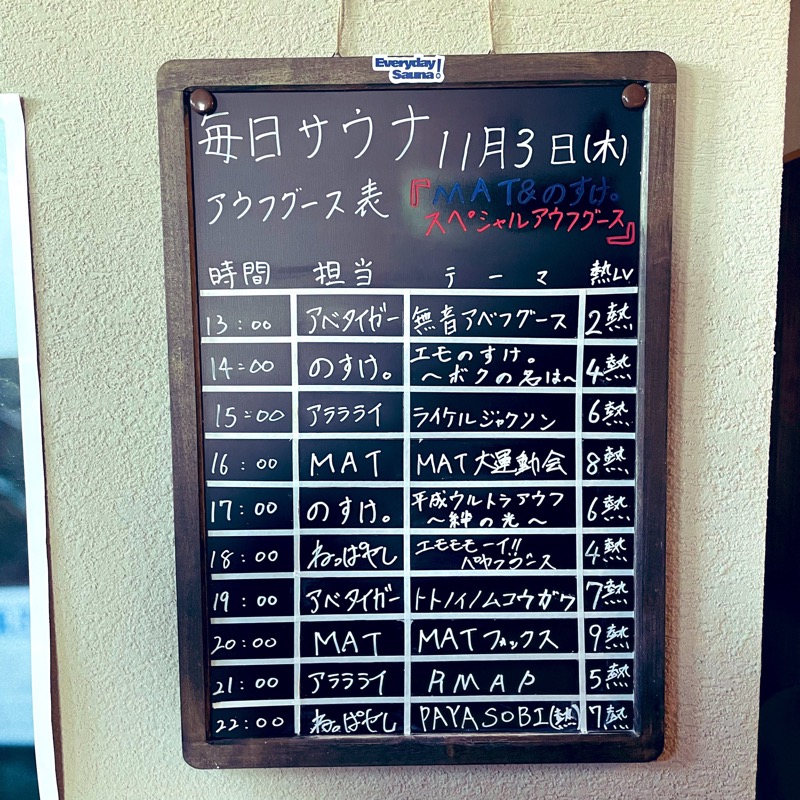 Everyday
Sauna!
毎日サウナ 11月3日(木)
アウフグース表 『MAT&のすけ。
スペシャルアウフグース』
時間 担当 テーマ 熱LV
13:00 アベタイガー 無音アベフグース 2熱
14:00 のすけ。 エモのすけ。 4熱
～ボクの名は～
15:00 アララライ ライケルジャクソン 6熱
16:00 MAT MAT大運動会 8熱
17:00 のすけ。 平成ウルトラアウフ 6熱
～絆の光～
18:00 ねっぱやし エモモモーイ!! 4熱
19:00 アベタイガー トトノイノムコウガワ 7熱
20:00 MAT MATフォックス 9熱
21:00 アララライ RMAP 5熱
22:00 ねっぱやし PAYASOBI(熱) 7熱